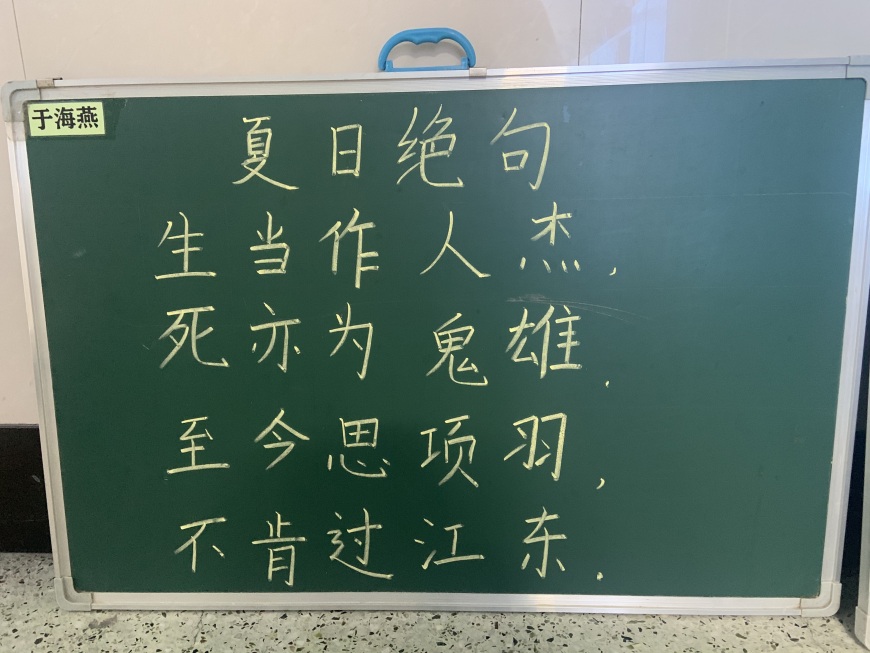 于海燕
夏日绝句
生当作人杰,
死亦为鬼雄.
至今思项羽,
不肯过江东.